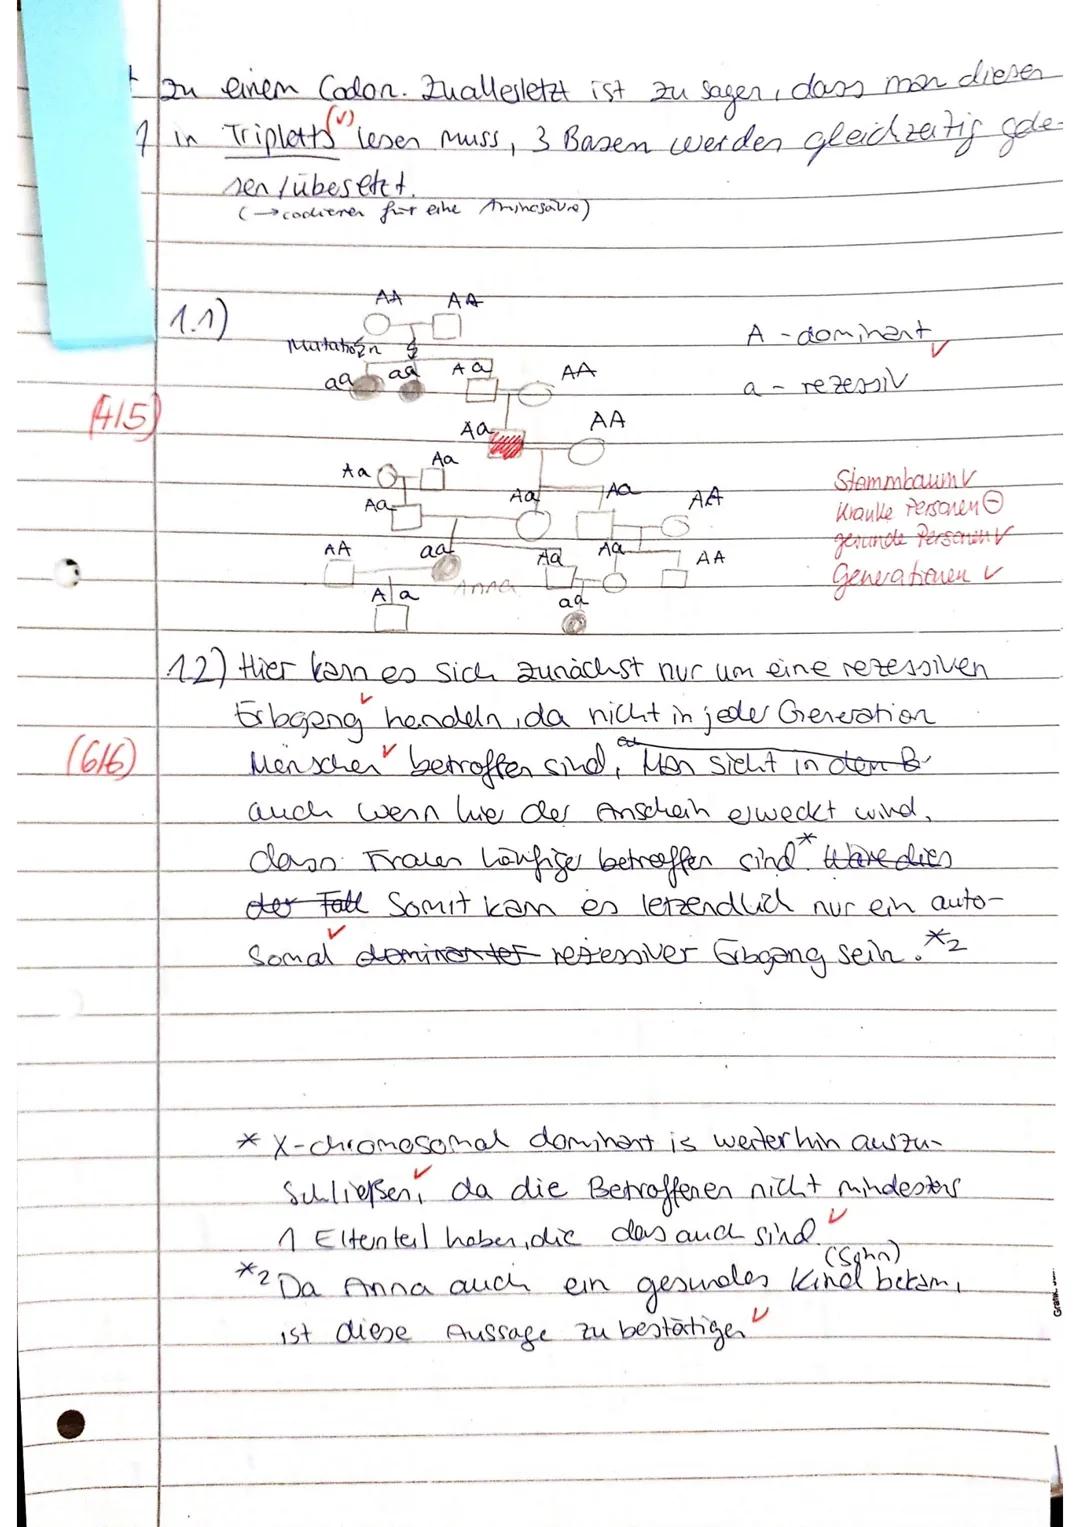 zu einem Codon. Zuallesletzt ist zu sagen, dass man diesen
1 in Tripletts (√) lesen muss, 3 Basen werden gleichzeitig gele-
sen/übesetzt.
(→codieren für eine Aminosäure)
1.1)
AA AA
A - dominant √
Mutation
aa aa Aa AA
a - rezessiv
(4/5)
Aa AA
Aa Aa
Stammbaum √
Aa Aa Aa AA
Kranke Personen ⊖
gesunde Personen √
AA aa Aa Aa AA
Generationen √
Aa Anna aa
1.2) Hier kann es sich zunächst nur um eine rezessiven
Erbgang √ handeln, da nicht in jeder Generation
(6/6)
Menschen √ betroffen sind, Man sieht in dem
auch wenn hier der Anschein erweckt wird,
dass Frauen häufiger betroffen sind.* Wäre dies
der Fall Somit kann es letzendlich nur ein auto-
somal √ dominanter rezessiver Erbgang sein. *2
* X-chromosomal dominant is weiterhin auszu-
schließen √, da die Betroffenen nicht mindestens
1 Elternteil haben, die das auch sind. √
*2 Da Anna auch ein gesundes Kind (Sohn) bekam,
ist diese Aussage zu bestätigen √